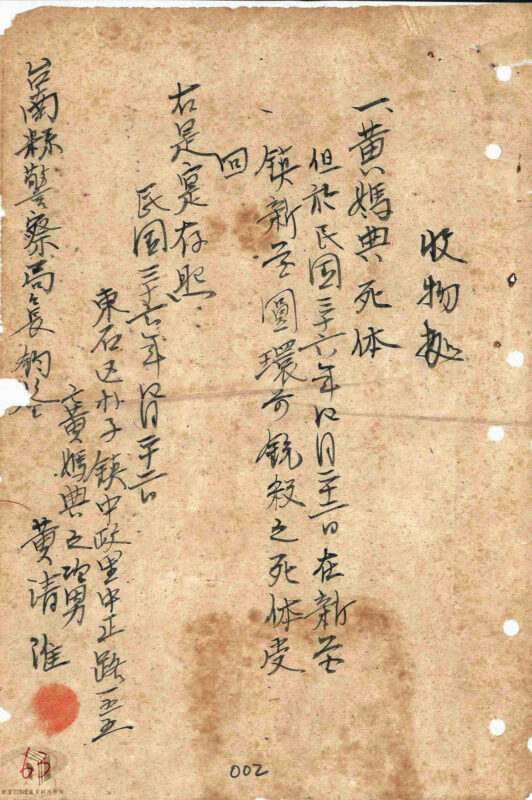 收物拠
一黄媽典死体
但於民国三十六年四月二十二日在新営
鎮新営圓環前銃殺之死体受
回
右是寔存照
民国三十六年四月二十二日
東石区朴子鎮中政里中正路一五五
黄媽典之次男
黄清淮
台南縣警察局々長鈞鑒
002
63